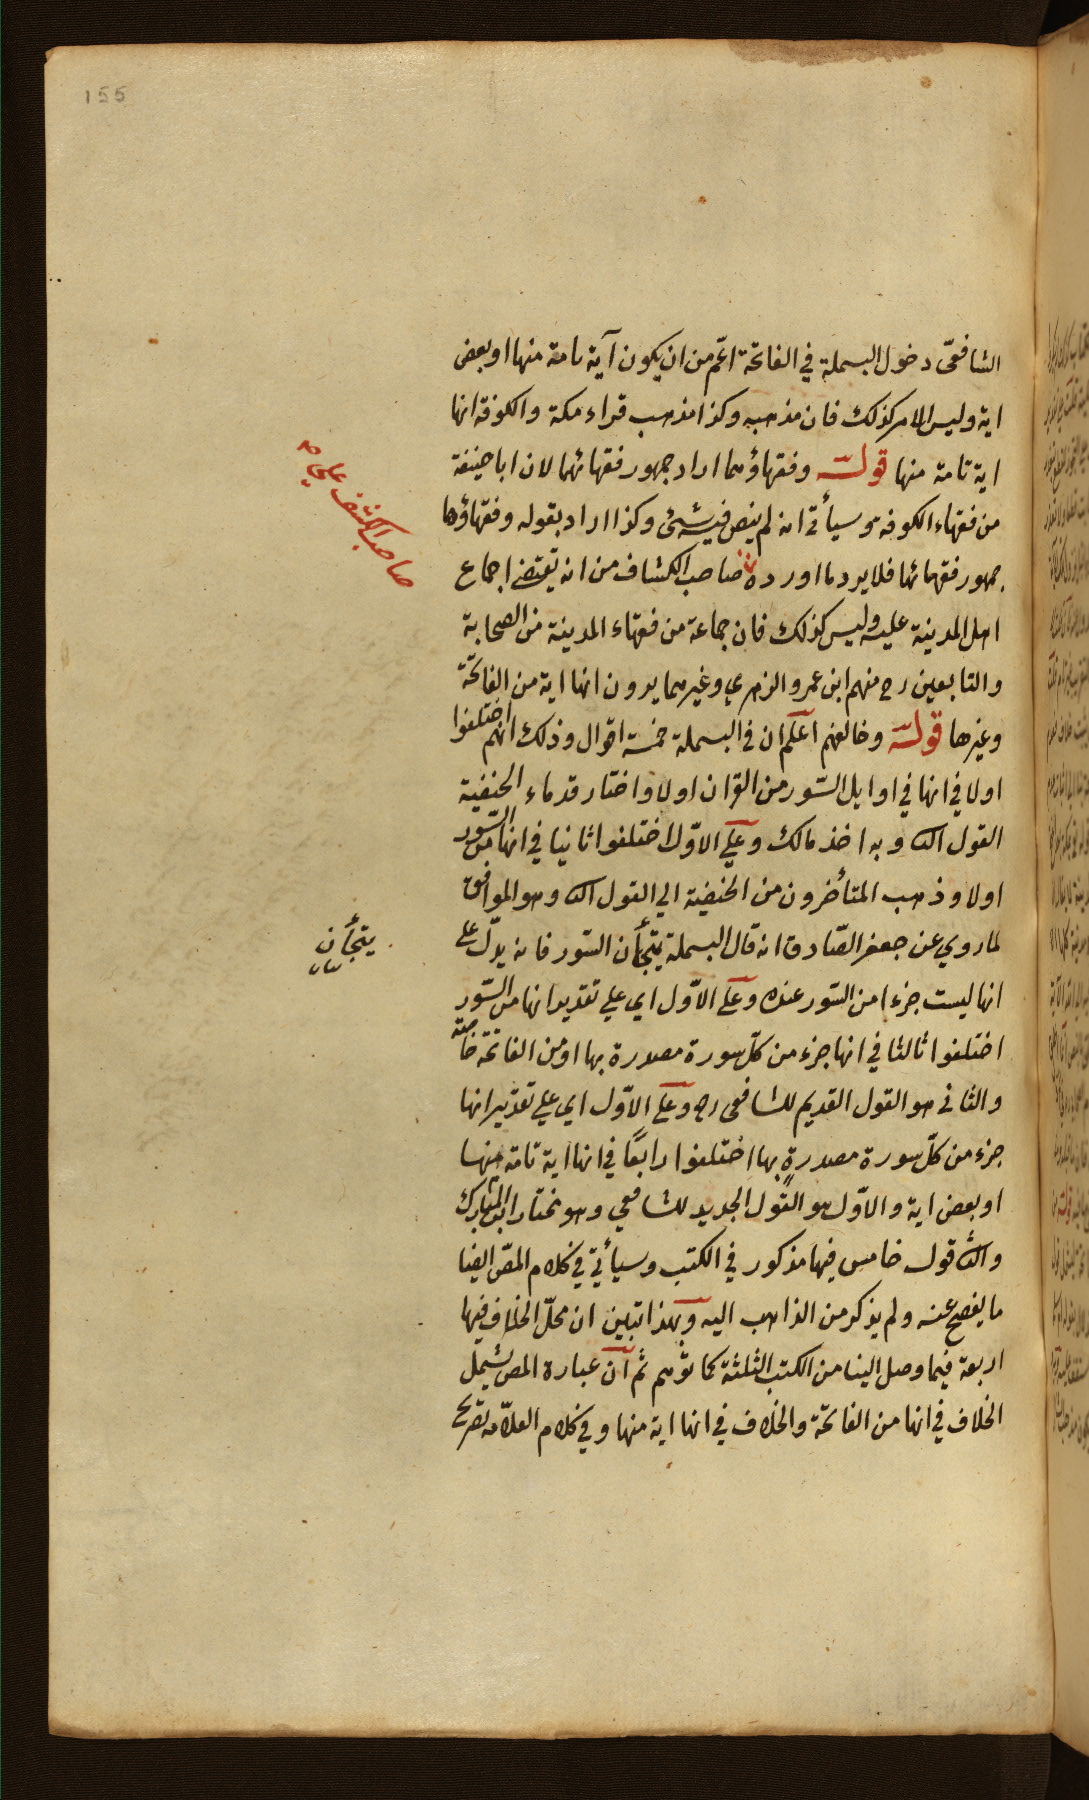 155
الشافعىّ دخول البسملة في الفاتحة اعّم من ان يكون آية تامة منها او بعض
اية وليس الامر كذلك فان مذهبه وكذا مذهب قراء مكة والكوفة انها
اية تامة منها قوله وفقهاؤهما اراد جمهور فقهائهما لان ابا حنيفة
من فقهاء الكوفة وسيأتى انه لم ينص فيه بشئ وكذا اراد بقوله وفقهاؤها
جمهور فقهائها فلا يرد ما اورده صاحب الكشاف من انه يقتضى اجماع
صاحب الكشف على
اهل المدينة عليه وليس كذلك فان جماعة من فقهاء المدينة من الصحابة
والتابعين رح منهم ابن عمر والزهري وغيرهما يرون انها اية من الفاتحة
وغيرها قوله وخالفهم اعلم ان في البسملة خمسة اقوال وذلك انهم اختلفوا
اولا في انها في اوايل السّور من القران اولا واختار قدماء الحنفية
القول الثا وبه اخذ مالك وعلي الاوّل اختلفوا ثانيا في انها من السّور
اولا وذهب المتأخرون من الحنفية الي القول الثا وهو الموافق
لما روي عن جعفر الصّادق انه قال البسملة يتجأن السّور فانه يدلّ على
يتجأن
انها ليست جزءا من السّور عنده وعلى الاوّل اي علي تقدير انها من السّور
اختلفوا ثالثا في انها جزء من كلّ سورة مصدرة بها او من الفاتحة خاصة
والثانى هو القول القديم للشافعى رح وعلى الاوّل اي علي تقدير انها
جزء من كلّ سورة مصدرةٍ بها اختلفوا رابعًا في انها اية تامة منها
او بعض اية والاوّل هو القول الجديد للشافعي وهو مختار ابن المبارك
والثا قول خامس فيها مذكور في الكتب وسيأتي في كلام المصّ ايضا
ما يفصح عنه ولم يذكر من الذاهب اليه وبهذا تبين ان محلّ الخلاف فيها
اربعة فيما وصل الينا من الكتب الثلثة كما توهم ثم ان عبارة المص يشمل
الخلاف في انها من الفاتحة والخلاف في انها اية منها وفي كلام العلامة تصريح